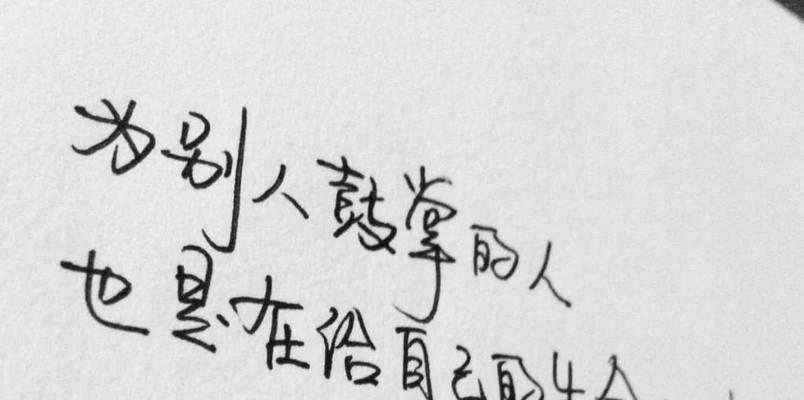 为别人鼓掌的人
也是在给自己的